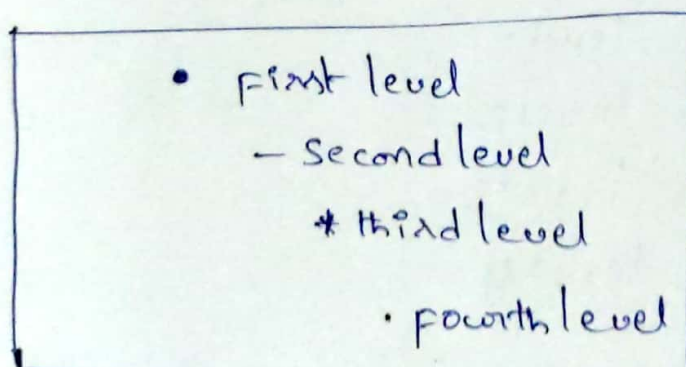 • First level
– Second level
* third level
· Fourth level